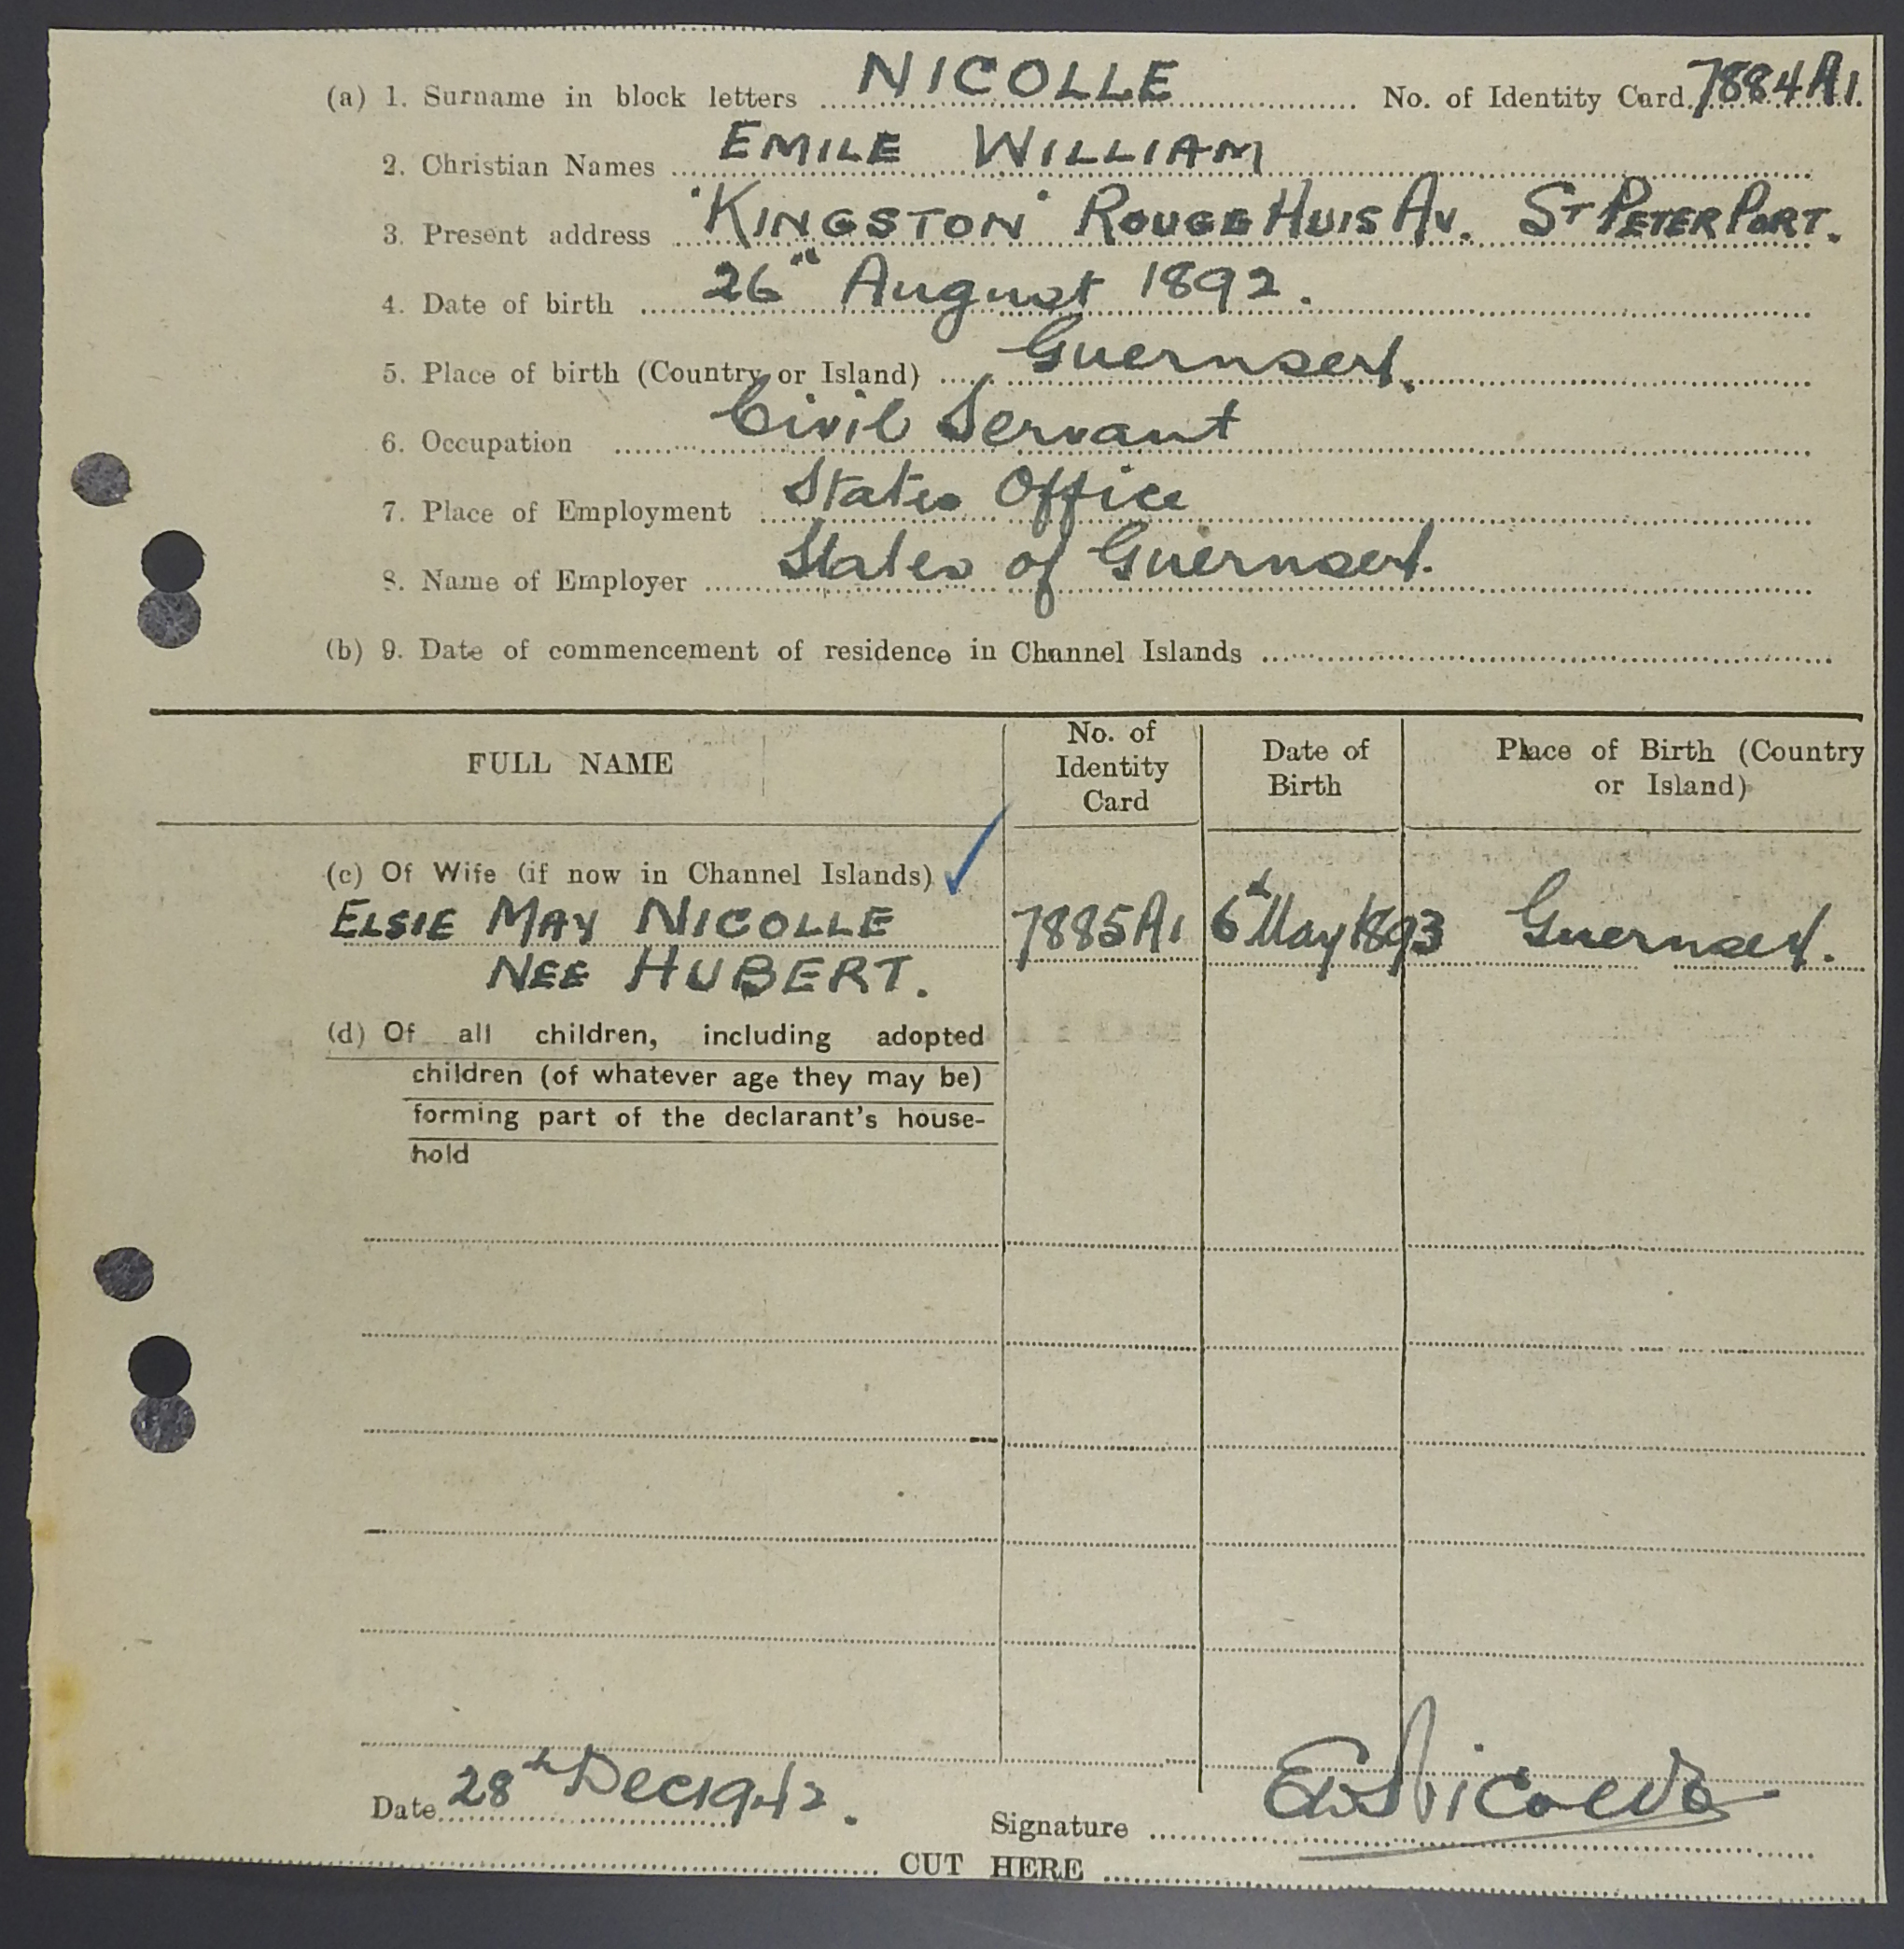 (a) 1. Surname in block letters NICOLLE No. of Identity Card 7884 A1.
2. Christian Names EMILE WILLIAM
3. Present address "KINGSTON" ROUGE HUIS AV. ST PETER PORT.
4. Date of birth 26th August 1892.
5. Place of birth (Country or Island) Guernsey.
6. Occupation Civil Servant
7. Place of Employment States Office
8. Name of Employer States of Guernsey.
(b) 9. Date of commencement of residence in Channel Islands
FULL NAME No. of Identity Card Date of Birth Place of Birth (Country or Island)
(c) Of Wife (if now in Channel Islands) ✓
ELSIE MAY NICOLLE 7885 A1 6th May 1893 Guernsey.
NEE HUBERT.
(d) Of all children, including adopted
children (of whatever age they may be)
forming part of the declarant's house-
hold
Date 28th Dec 1942. Signature EW Nicolle
CUT HERE